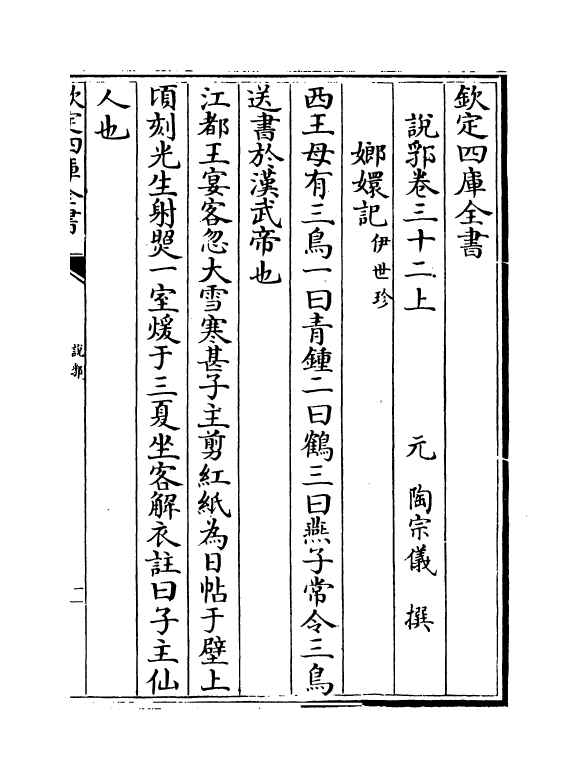 欽定四庫全書
說郛卷三十二上　元　陶宗儀　撰
嫏嬛記伊世珍
西王母有三鳥一曰青鍾二曰鶴三曰燕子常令三鳥
送書於漢武帝也
江都王宴客忽大雪寒甚子主剪紅紙為日帖于壁上
頃刻光生射煚一室煖于三夏坐客解衣註曰子主仙
人也
欽定四庫全書
說郛
二